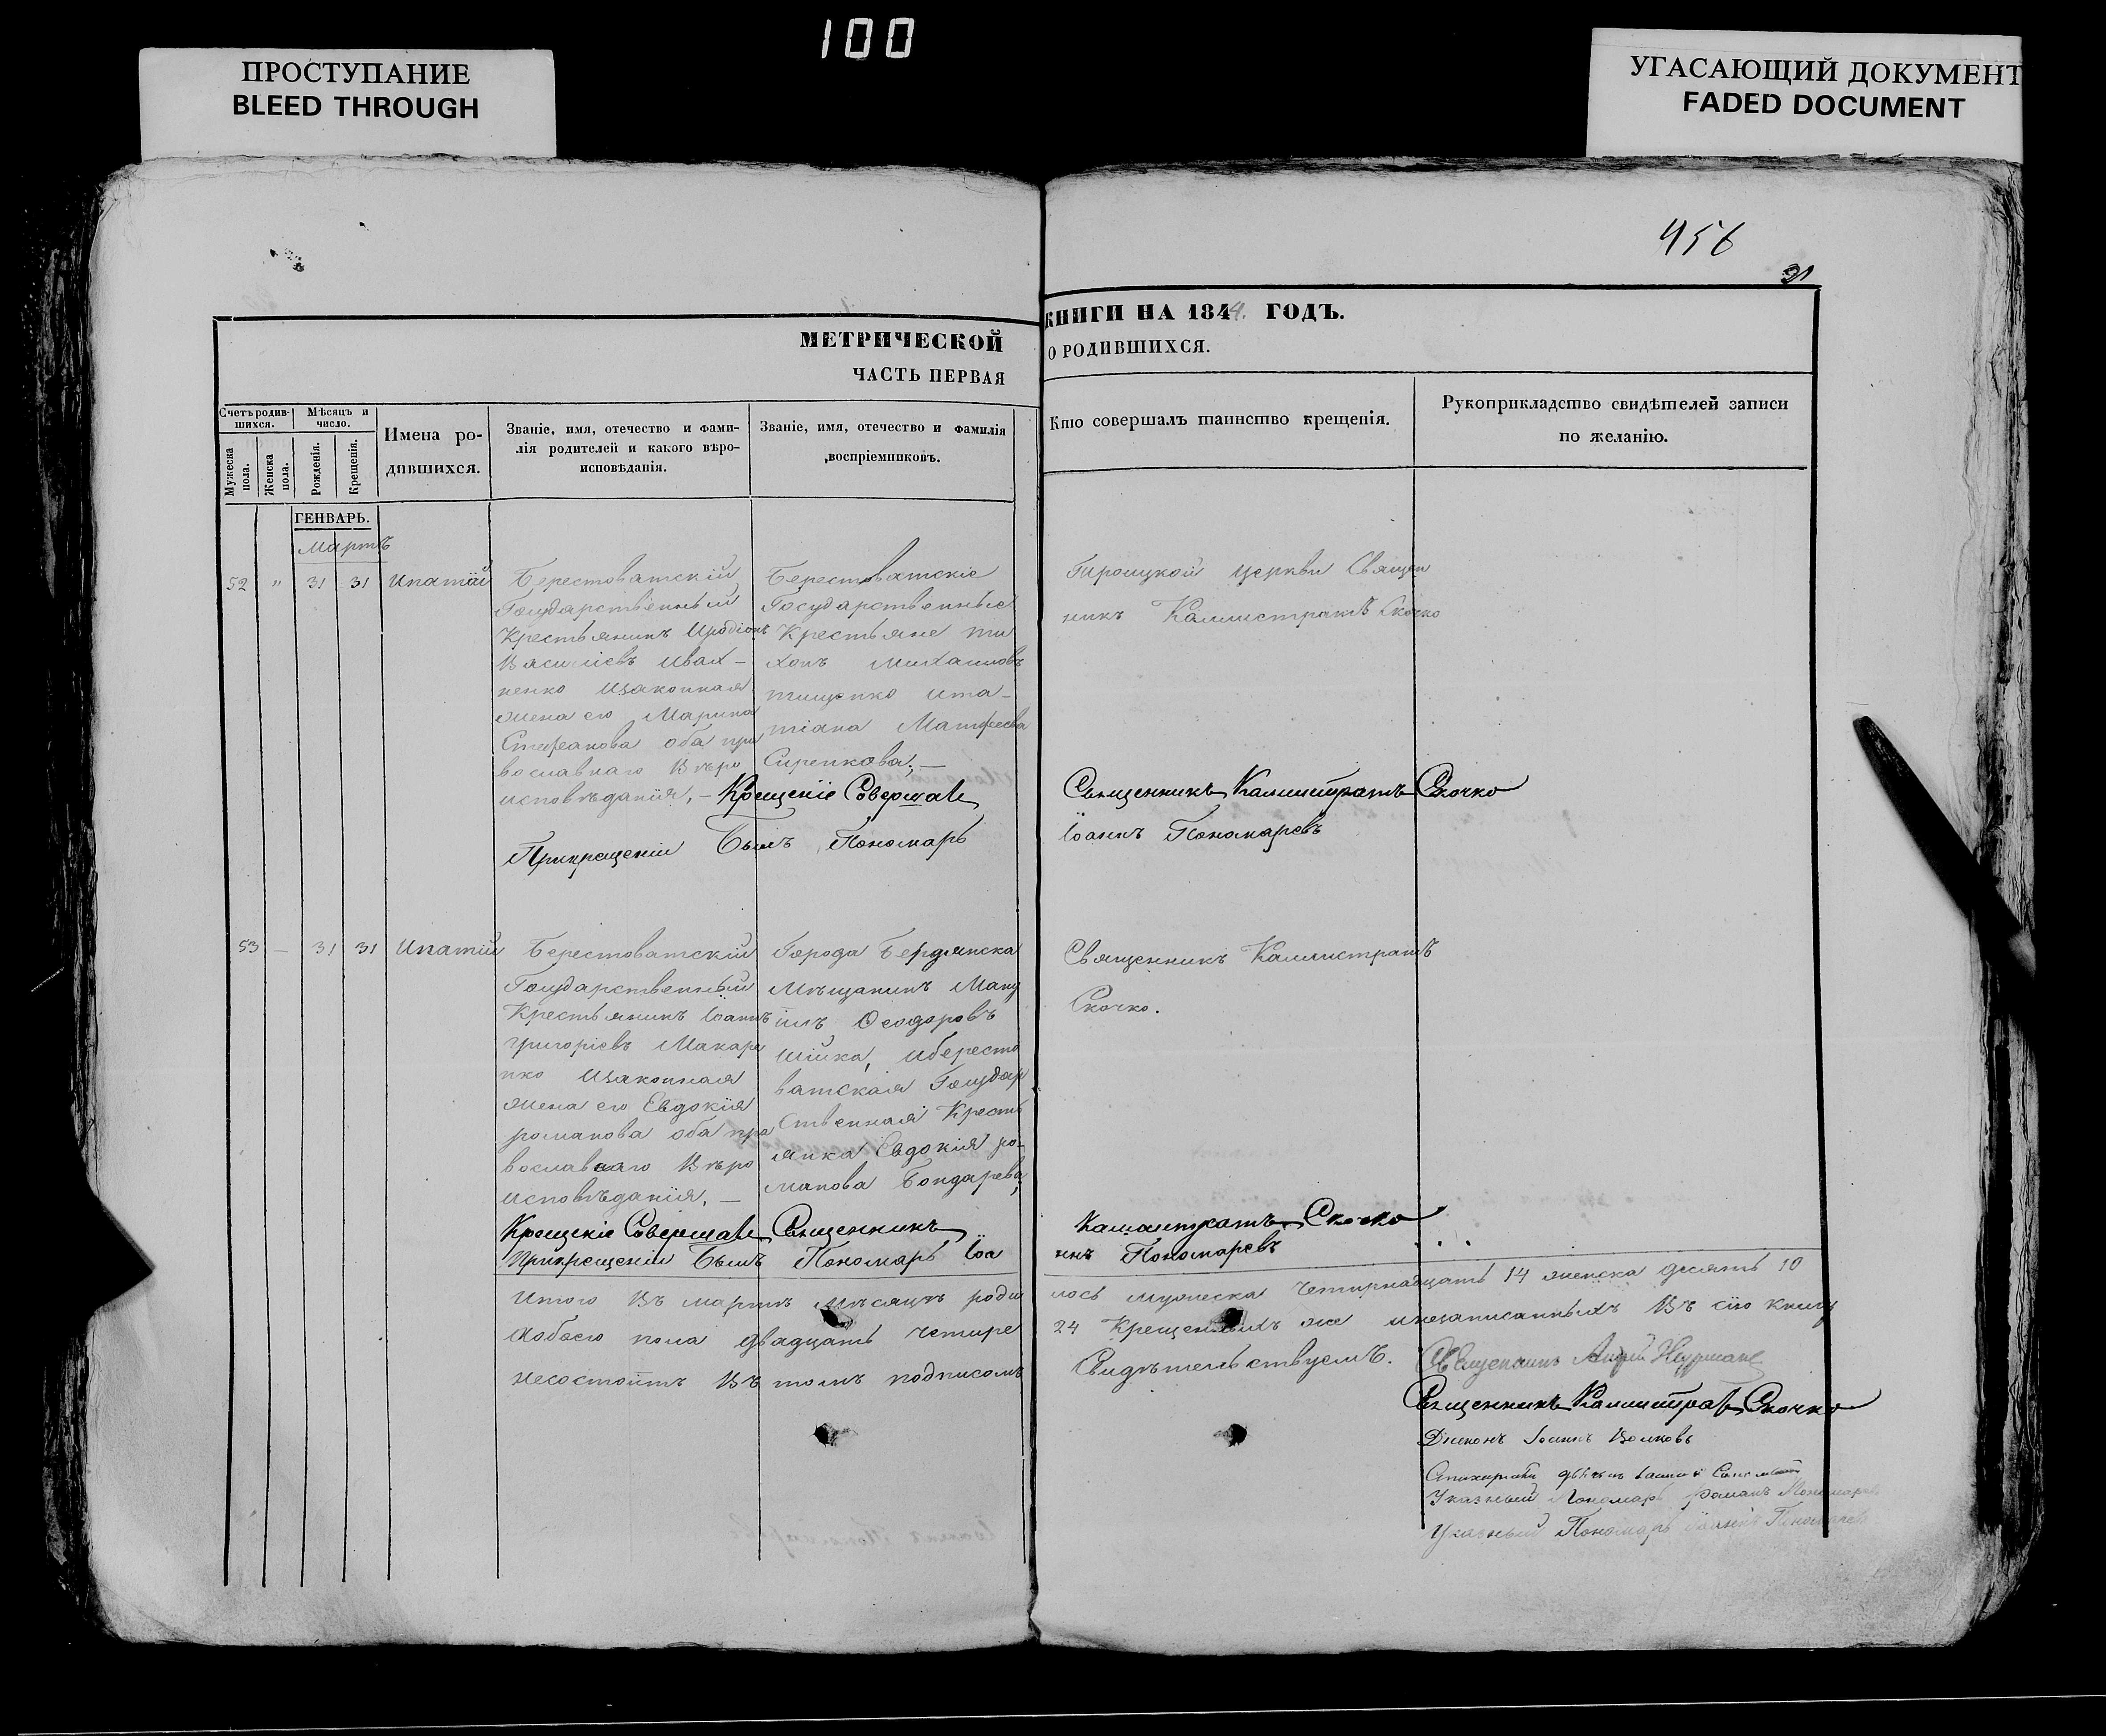 100
ПРОСТУПАНИЕ
BLEED THROUGH
УГАСАЮЩИЙ ДОКУМЕНТ
FADED DOCUMENT
456
31
МЕТРИЧЕСКОЙ
ЧАСТЬ ПЕРВАЯ
КНИГИ НА 1844. ГОДЪ.
О РОДИВШИХСЯ.
Счетъ родив-
шихся.
Мужеска
пола.
Женска
пола.
Мѣсяцъ и
число.
Рожденія.
Крещенія.
Имена ро-
дившихся.
Званіе, имя, отечество и фами-
лія родителей и какого вѣро-
исповѣданія.
Званіе, имя, отечество и фамилія
воспріемниковъ.
Кто совершалъ таинство крещенія.
Рукоприкладство свидѣтелей записи
по желанію.
ГЕНВАРЬ.
Мартъ
52 " 31 31 Ипатій
Берестоватскій
Государственный
Крестьянинъ Иродіонъ
Василіевъ Ивах-
ненко Изаконная
жена его Марина
Стефанова оба пра
вославнаго Вѣро
исповѣданія, –
Берестоватскіе
Государственные
Крестьяне ти
хонъ Михаиловъ
тищенко ита-
тіана Матфеева
Сиренкова; –
Троицкой церкви Священ
никъ Каллистратъ Скочко
Крещеніе Совершалъ Священникъ Каллистратъ Скочко
Прикрещеніи Былъ Пономарь Іоаннъ Пономаревъ
53 – 31 31 Ипатій
Берестоватскій
Государственный
Крестьянинъ Іоаннъ
григоріевъ Макаре
нко Изаконная
жена его Евдокія
романова оба пра
вославнаго Вѣро
исповѣданія, –
Города Бердянска
Мѣщанинъ Ману
илъ Ѳеодоровъ
шійка, ибересто
ватская Государ
ственная Кресть
янка Евдокія ро-
манова Бондарева,
Священникъ Каллистратъ
Скочко.
Крещеніе Совершалъ Священникъ Каллистратъ Скочко
Прикрещеніи Былъ Пономарь Іоа ннъ Пономаревъ
Итого Въ мартѣ мѣсяцѣ роди лось мужеска Четырнадцать 14 женска десять 10
Аобоего пола двадцать четыре 24 Крещенныхъ же инезаписанныхъ Въ сію книгу
несостоитъ Въ томъ подписомъ Свидѣтельствуемъ.
Священникъ Андрей
Священникъ Каллистратъ Скочко
Діаконъ Іоаннъ Волковъ
Іоаннъ
Указный Пономарь романъ Пономаревъ
Указный Пономарь Іоаннъ Пономаревъ